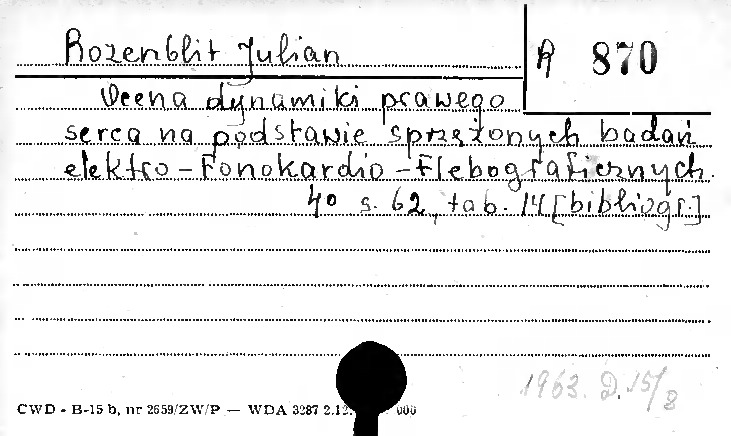 Rozenblit Julian
R 870
Ocena dynamiki prawego
serca na podstawie sprzężonych badań
elektro-Fonokardio-Flebograficznych.
4° s. 62, tab. 14 [bibliogr.]
1963. D. 15/8
CWD - B-15 b, nr 2659/ZW/P — WDA 3287 2.12. 000